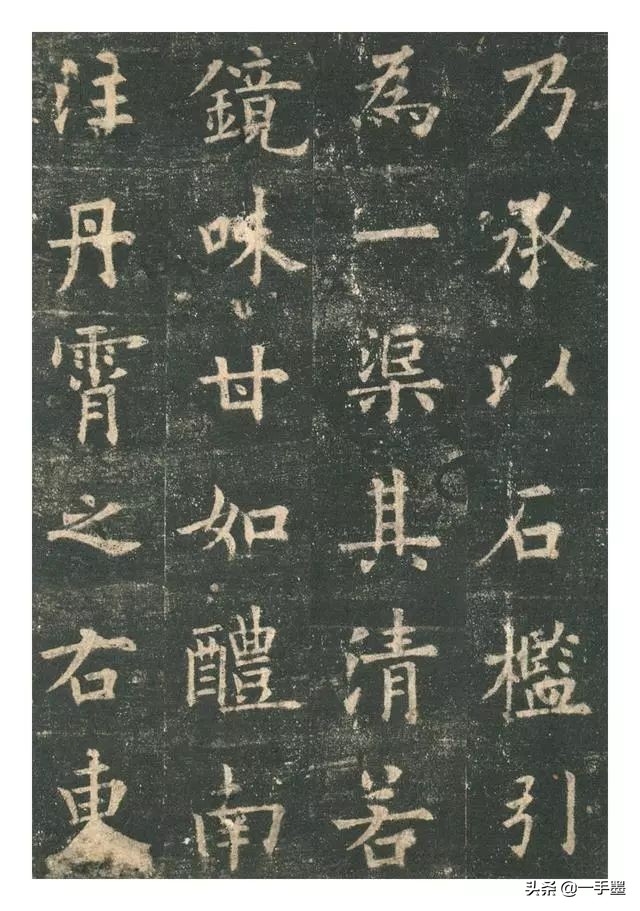 乃承以石檻引
為一渠其清若
鏡味甘如醴南
注丹霄之右東
头条 @一手墨